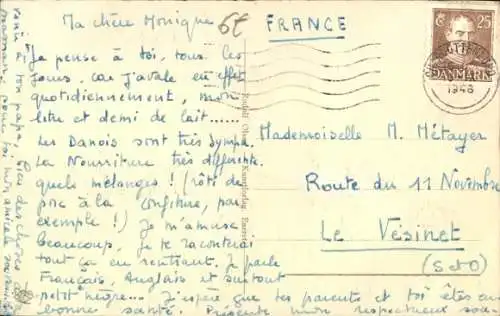 Ma chère Monique
6f
FRANCE
25
DANMARK
1948
Je pense à toi, tous les
jours, car j'avale en effet
quotidiennement, mon
litre et demi de lait......
Les Danois sont très sympa.
La Nourriture très différente.
quels mélanges! (rôti de
porc à la confiture, par
exemple!) Je m'amuse
beaucoup, je te raconterai
tout ça en rentrant. Je parle
Français, Anglais et surtout
petit nègre... J'espère que tes parents et toi êtes en
bonne santé. Présente mon respectueux souv
Mademoiselle M. Métayer
Route du 11 Novembre
Le Vésinet
(S et O)
à ton papa,
maman, pour toi mon amical